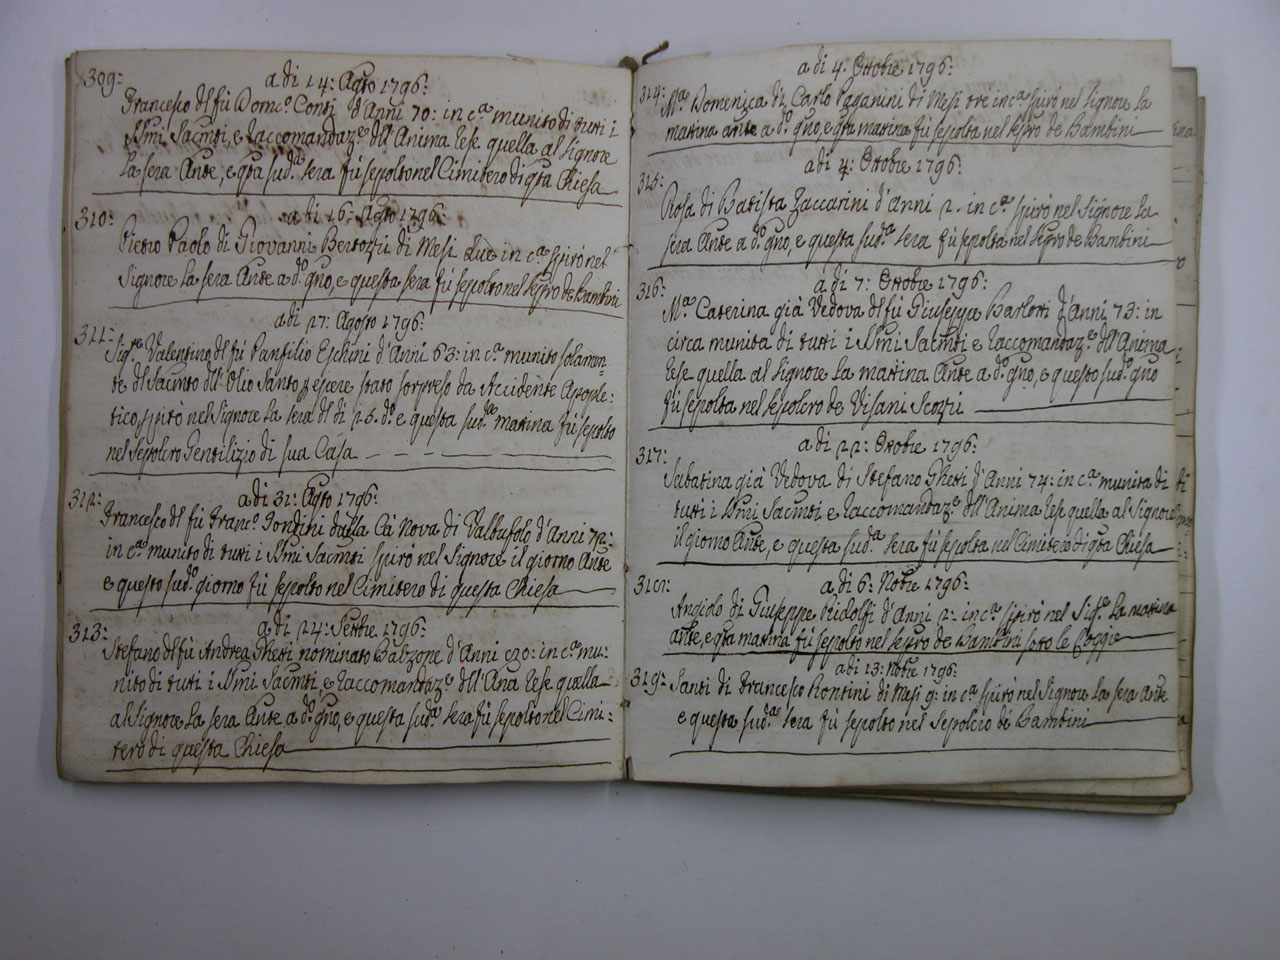 309:
a di 14: Agto 1796:
Francesco dl fù Domco. Conti d'Anni 70: in ca. munito di tuti i
SSmi Sacmti, e Raccomandaze. dll'Anima rese quella al Signore
la sera Ante, e qta sudta. sera fù sepolto nel Cimitero di qta Chiesa
310:
a di 16: Agto 1796:
Pietro Paolo di Giovanni Bertozzi di Mesi due in ca. spirò nel
Signore la sera Ante a do. gno, e questa sera fù sepolto nel sepro de Bambini
311:
a di 27: Agosto 1796:
Sigre. Valentino dl fù Panfilio Eschini d'Anni 63: in ca. munito solamen-
te dl Sacmto dll'Olio Santo p essere stato sorpreso da Accidente Apople-
tico, spirò nel Signore la sera dl dì 26. do. e questa suda. matina fù sepolto
nel sepolcro Gentilizio di sua Casa
312:
a di 31: Agto 1796:
Francesco dl fù Franco. Tondini dalla Cà Nova di Valbusolo d'Anni 72:
in ca. munito di tuti i SSmi Sacmti spirò nel Signore il giorno Ante
e questo sudo. giorno fù sepolto nel Cimitero di questa Chiesa
313:
a di 24: Settbre 1796:
Stefano dl fù Andrea Gheti nominato Balzone d'Anni 80: in ca. mu-
nito di tuti i SSmi Sacmti, e Raccomandaze dll'Ana rese quella
al Signore la sera Ante a do. gno, e questa suda. sera fù sepolto nel Cimi:
tero di questa Chiesa
314:
a di 4. Ottobre 1796:
Ma. Domenica di Carlo Paganini di Mesi tre in ca. spirò nel Signore la
matina ante a do. gno, e qta matina fù sepolta nel sepro de Bambini
315:
a di 4: Ottobre 1796:
Rosa di Batista Zaccarini d'Anni 2. in ca. spirò nel Signore la
sera Ante a do. gno, e questa suda. sera fù sepolta nel sepro de Bambini
316:
a di 7: Ottobre 1796:
Ma. Caterina già Vedova dl fù Giuseppe Barlotti d'Anni 73: in
circa munita di tutti i SSmi Sacmti e Raccomandaze. dll'Anima
rese quella al Signore la mattina Ante a do. gno, e questo sudo. gno
fù sepolta nel sepolcro de Visani Scozzi
317:
a di 22: Ottobre 1796:
Sabatina già Vedova di Stefano Gheti d'Anni 74: in ca. munita di
tuti i SSmi Sacmti e Raccomandaze. dll'Anima rese quella al Signore
il giorno Ante, e questa suda. sera fù sepolta nel Cimitero di qta Chiesa
318:
a di 6: Nobre 1796:
Angiolo di Giuseppe Ridolfi d'Anni 2: in ca. spirò nel Sige. la matina
ante, e qta matina fù sepolto nel sepro de Bambini soto le Loggie
319:
a di 13: Nobre 1796:
Santi di Francesco Rontini di Mesi 9: in ca. spirò nel Signore la sera Ante
e questa suda. sera fù sepolto nel Sepolcro de Bambini